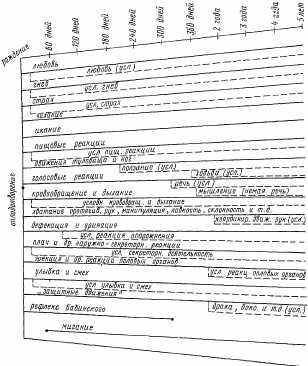 рождение
60 дней
120 дней
180 дней
240 дней
300 дней
360 дней
2 года
3 года
4 года
5 лет
оплодотворение
любовь
любовь (усл.)
гнев
усл. гнев
страх
усл. страх
икание
пищевые реакции
усл. пищ. реакции
движения туловища и ног
ползание (усл.)
ходьба (усл.)
голосовые реакции
речь (усл.)
мышление (немая речь)
кровообращение и дыхание
условн. кровообращ. и дыхание
хватание
рук, манипуляция, ловкость, склонность и т.д.
координир. движ. рук (усл.)
дефекация и уринация
усл. реакция опорожнения
плач и др. наружно-секретори. реакции
усл. секреторн. деятельность
эрекция и др. реакции половых органов
усл. реакц. половых органов
улыбка и смех
усл. улыбка и смех
"защитные движения"
драка, бокс и т.д. (усл.)
рефлекс Бабинского
мигание